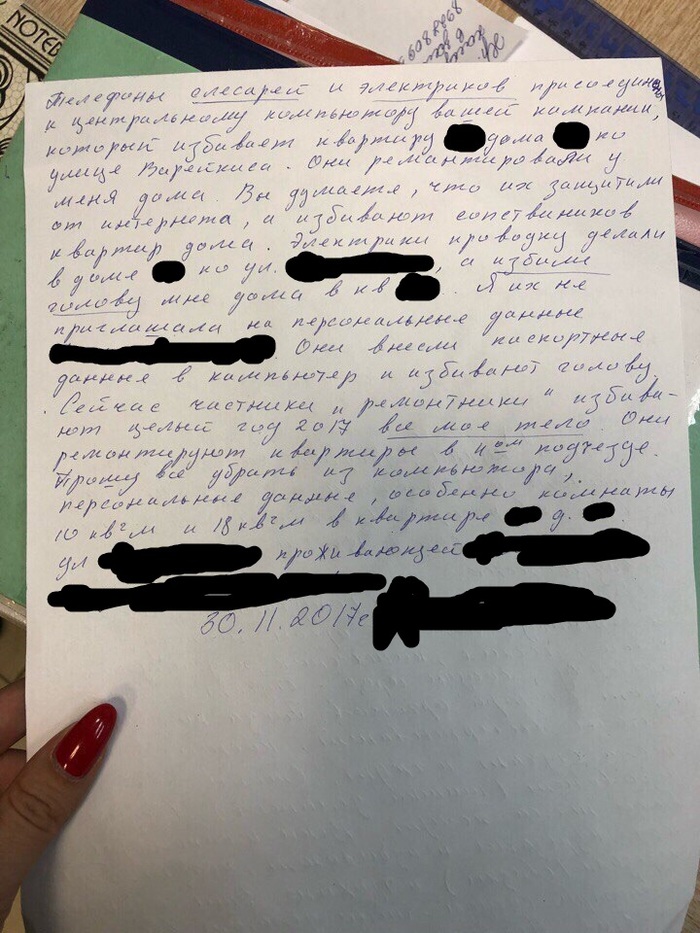 NOTEB
Телефоны слесарей и электриков присоединены
к центральному компьютору вашей компании,
который избивает квартиру дома по
улице Варейкиса. Они ремантировали у
меня дома. Вы думаете, что их защитили
от интернета, а избивают сопствиников
квартир дома. Электрики проводку делали
в доме по ул. , а избили
голову мне дома в кв . Я их не
приглашала на персональные данные
Они внесли паспортные
данные в компьютер и избивают голову.
Сейчас частники и „ремонтники" избива-
ют целый год 2017 все мое тело. Они
ремонтируют квартиры в 4ом подъезде.
Прошу все убрать из компьютора,
персональные данные, особенно комнаты
10 кв²м и 18 кв²м в квартире д.
ул проживающей
30.11.2017г